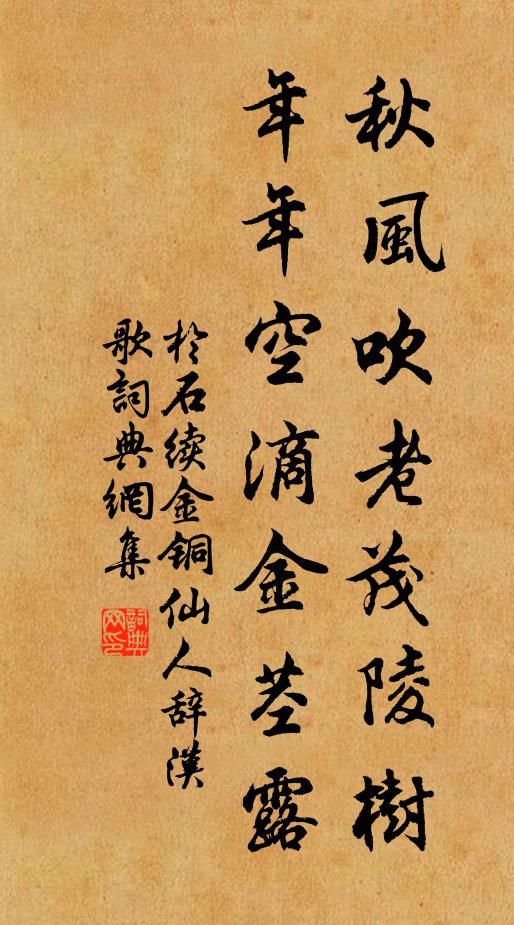 秋風吹老茂陵樹
年年空滴金莖露
於石续金铜仙人辞漢
歌詞典網集
詞典网印